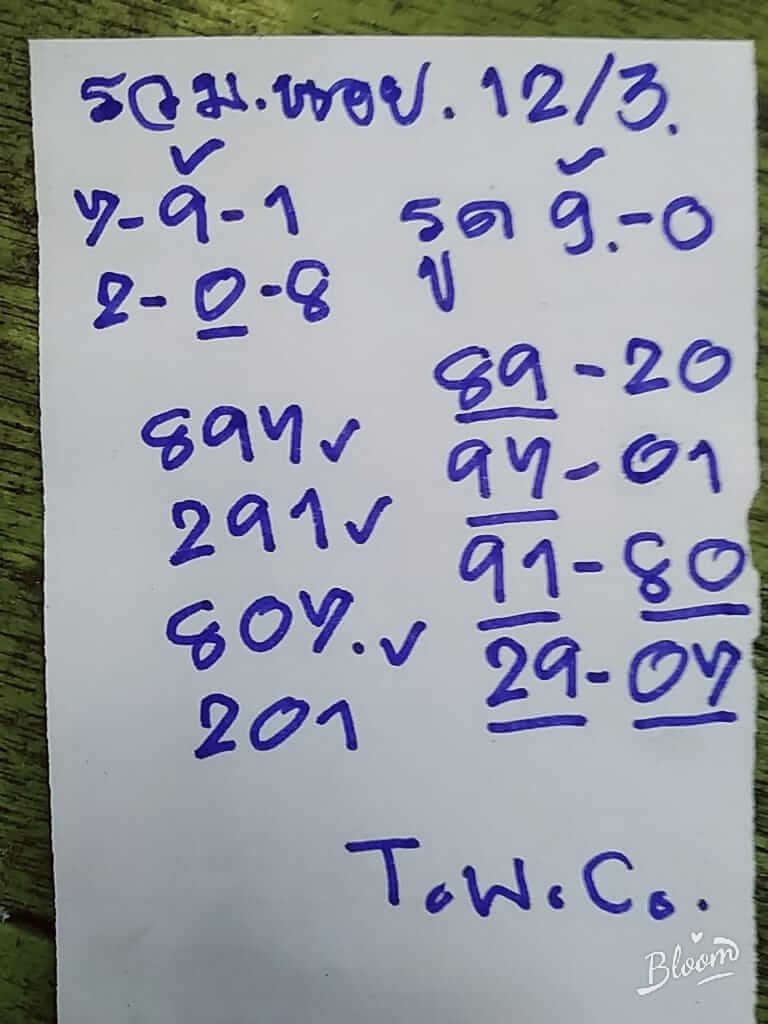 รวม.หนอย. 12/3.
7-9-1 รูด 9.-0
2-0-8
89-20
897✓
97-01
291✓
91-80
807.✓
29-07
201
T.W.C.
Bloom